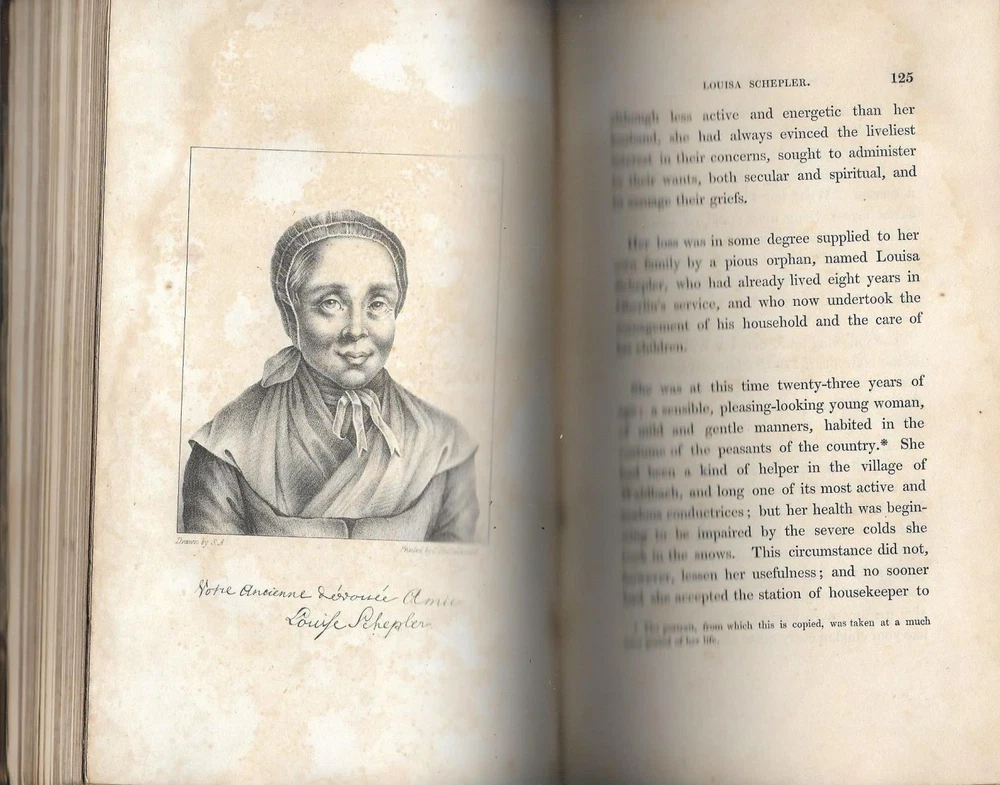 Drawn by S.A
Votre Ancienne dévouée Amie
Louise Schepler
LOUISA SCHEPLER.
125
although less active and energetic than her
husband, she had always evinced the liveliest
interest in their concerns, sought to administer
to their wants, both secular and spiritual, and
to assuage their griefs.
Her loss was in some degree supplied to her
own family by a pious orphan, named Louisa
Schepler, who had already lived eight years in
Oberlin's service, and who now undertook the
management of his household and the care of
his children.
She was at this time twenty-three years of
age; a sensible, pleasing-looking young woman,
of mild and gentle manners, habited in the
costume of the peasants of the country.* She
had been a kind of helper in the village of
Waldbach, and long one of its most active and
zealous conductrices; but her health was begin-
ning to be impaired by the severe colds she
took in the snows. This circumstance did not,
however, lessen her usefulness; and no sooner
had she accepted the station of housekeeper to
The portrait, from which this is copied, was taken at a much
period of her life.